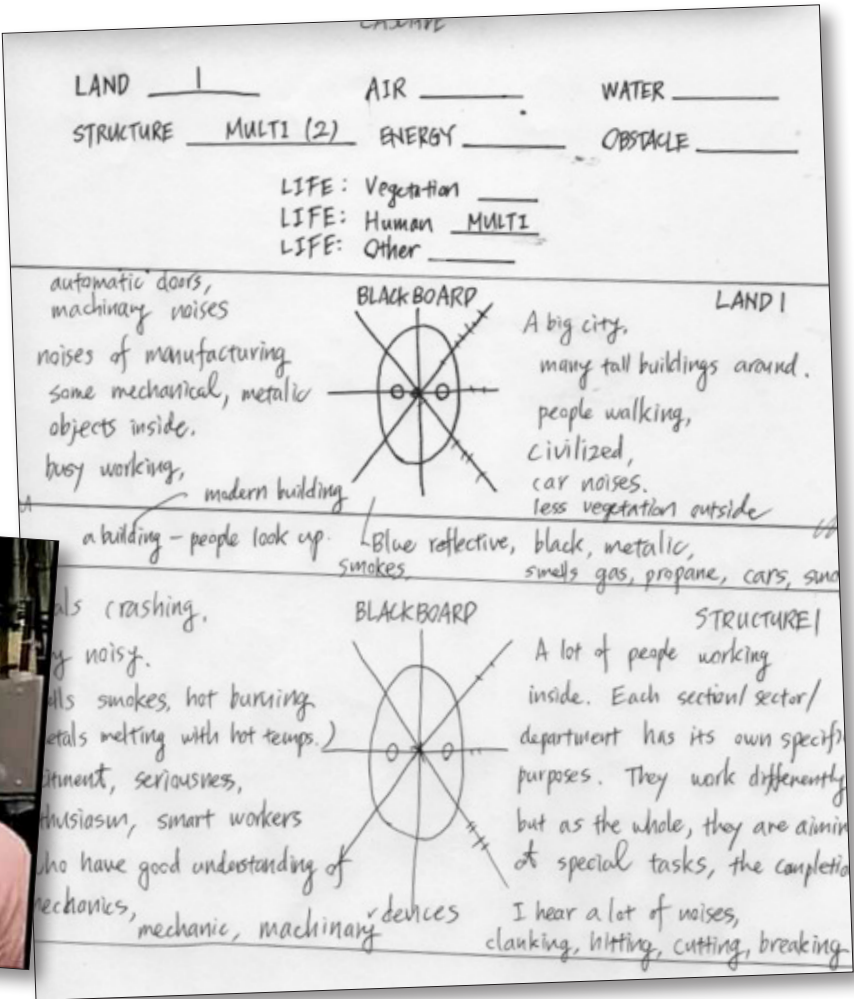 LAND 1 AIR WATER
STRUCTURE MULTI (2) ENERGY OBSTACLE
LIFE: Vegetation
LIFE: Human MULTI
LIFE: Other
automatic doors,
machinary noises
noises of manufacturing
some mechanical, metalic
objects inside.
busy working,
modern building
BLACKBOARD
LAND 1
A big city,
many tall buildings around.
people walking,
civilized,
car noises.
less vegetation outside
a building - people look up.
Blue reflective, black, metalic,
smokes, smells gas, propane, cars,
crashing,
noisy.
smokes, hot burning
melting with hot temps.)
seriousness,
smart workers
who have good understanding of
mechanics,
mechanic, machinary devices
BLACKBOARD
STRUCTURE 1
A lot of people working
inside. Each section/sector/
department has its own
purposes. They work differently
but as the whole, they are
at special tasks, the
I hear a lot of noises,
clanking, hitting, cutting, breaking